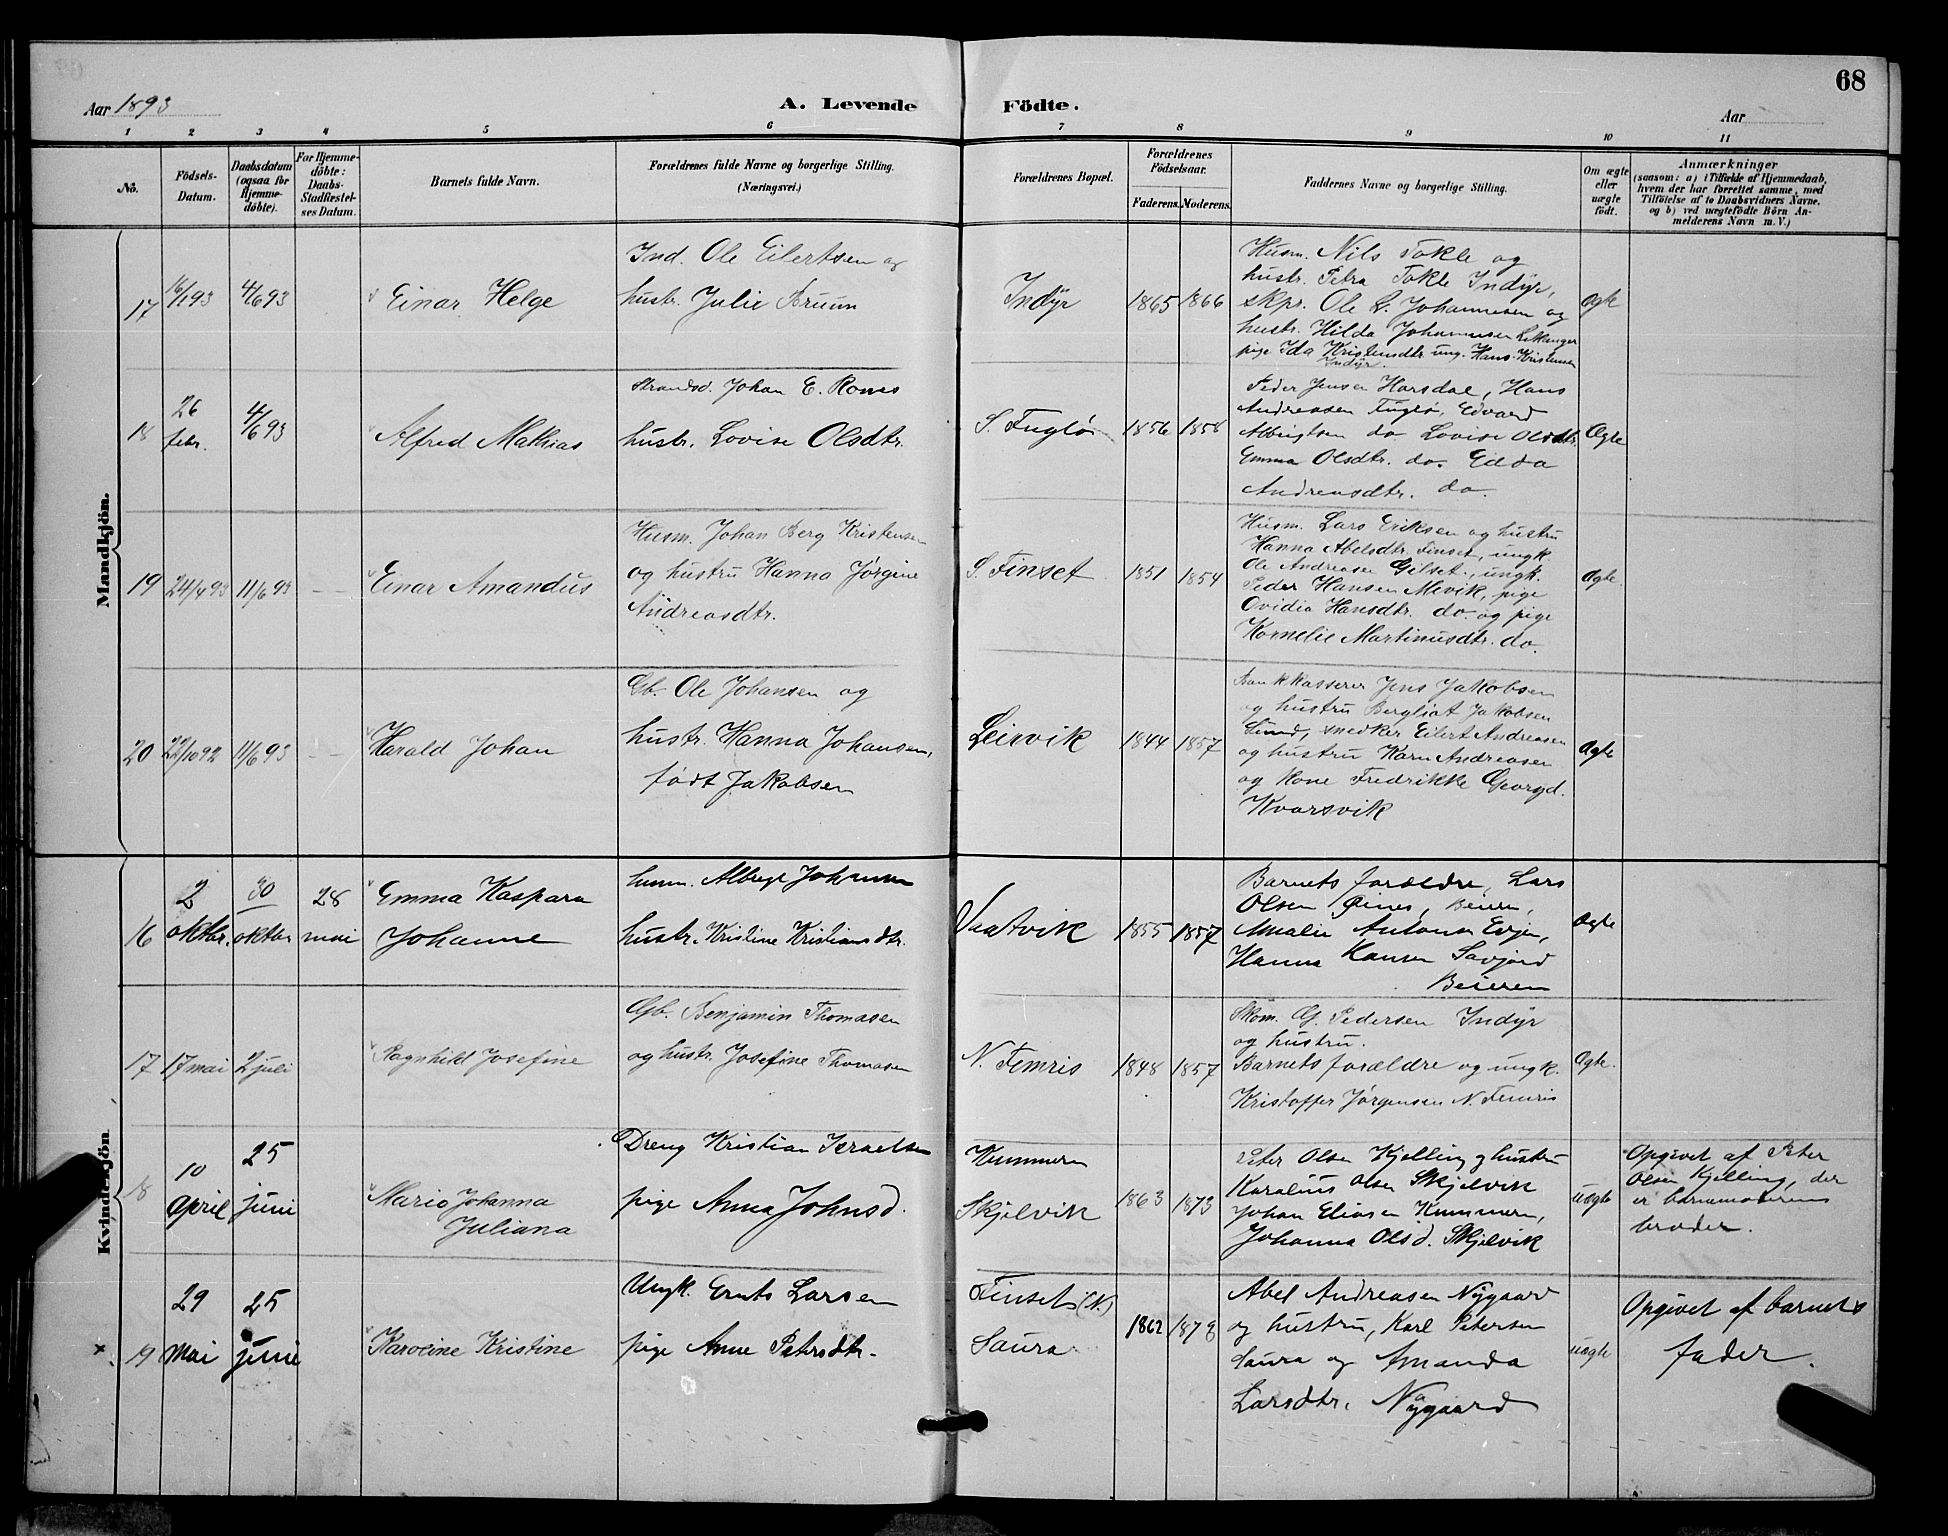 68
Aar 1893
A. Levende Födte.
Aar
1 2 3 4 5 6 7 8 9 10 11
No.
Födsels-Datum.
Daabsdatum (ogsaa for Hjemme-döbte).
For Hjemme-döbte: Daabs-Stadfæstel-ses Datum.
Barnets fulde Navn.
Forældrenes fulde Navne og borgerlige Stilling. (Næringsvei.)
Forældrenes Bopæl.
Forældrenes Födselsaar.
Faderens. Moderens.
Faddernes Navne og borgerlige Stilling.
Om ægte eller uægte födt.
Anmærkninger
(saasom: a) i Tilfælde af Hjemmedaab,
hvem der har forrettet samme, med
Tilföielse af to Daabsvidners Navne,
og b) ved uægtefödte Börn An-
melderens Navn m. V.)
Mandkjön.
17
16/1 93
4/6 93
Einar Helge
Ind. Ole Eilertsen og
hustr. Julie Bruun
Indyr
1865 1866
Husm. Nils Tokle og
hustr. Petra Tokle Indyr,
skpr. Ole L. Johannesen og
hustr. Hilda Johannesen
pige Ida Kristensdtr. ung. Hans Kristensen
Indyr.
Ægte
18
26
febr.
4/6 93
Alfred Mathias
Strands. Johan E. Rones
hustr. Lovise Olsdtr.
S. Fuglø
1856 1858
Peder Jensen Horsdal, Hans
Andreasen Fuglø, Edvard
Albrigtsen do Lovise Olsdtr.
Emma Olsdtr. do. Edda
Andreasdtr. do.
Ægte
19
24/4 93
11/6 93
Einar Amandus
Husm. Johan Berg Kristensen
og hustru Hanna Jørgine
Andreasdtr.
S. Finset
1851 1854
Husm. Lars Eriksen og hustru
Hanna Abelsdtr. Finset, ungk.
Ole Andreasen Gilset, ungk.
Peder Hansen Mevik, pige
Ovidia Hansdtr. do. og pige
Kornelie Martinusdtr. do.
Ægte
20
22/10 92
11/6 93
Harald Johan
Gb. Ole Johansen og
hustr. Hanna Johansen,
født Jakobsen
Leirvik
1844 1857
Bankkasserer Jens Jakobsen
og hustru Bergliot Jakobsen
Sund, snedker Eilert Andreasen
og hustru Karn Andreasen
og kone Fredrikke Georgd.
Kvarsvik
Ægte
Kvindekjön.
16
2
oktbr.
30
oktbr
28
mai
Emma Kaspara
Johanne
husm. Albrigt Johansen
hustr. Kristine Kristiansdtr.
Vaatvik
1855 1857
Barnets forældre, Lars
Olsen Øines, Beiern,
Amalie Antonsen Evjen,
Hanna Hansen Savjord
Beieren
Ægte
17
17 mai
2 juli
Ragnhild Josefine
Gb. Benjamin Thomasen
og hustr. Josefine Thomasen
N. Femris
1848 1857
Skom. G. Pedersen Indyr
og hustru.
Barnets forældre og ungk.
Kristoffer Jørgensen N. Femris
Ægte.
18
10
April
25
juni
Maria Johanna
Juliana
Dreng Kristian Israelsen
pige Anna Johnsd.
Kummern
Skjelvik
1863 1873
Peter Olsen Kjelling og hustru
Karalius Olsen Skjelvik
Johan Eliasen Kummern,
Johanna Olsd. Skjelvik
uægte
Opgivet af Peter
Olsen Kjelling, der
er barnemoderens
broder.
19
29
mai
25
juni
Karoline Kristine
Ungk. Ernts Larsen
pige Anne Petersdtr.
Finset (N)
Saura
1862 1878
Abel Andreasen Nygaard
og hustru, Karl Petersen
Saura og Amanda
Larsdtr. Nygaard
uægte
Opgivet af barnets
fader.